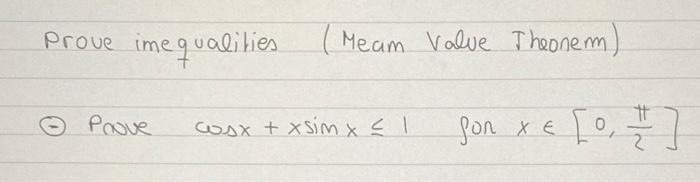 Prove inequalities (Mean Value Theorem)
⊖ Prove cosx + xsinx ≤ 1 for x ∈ [0, π/2]